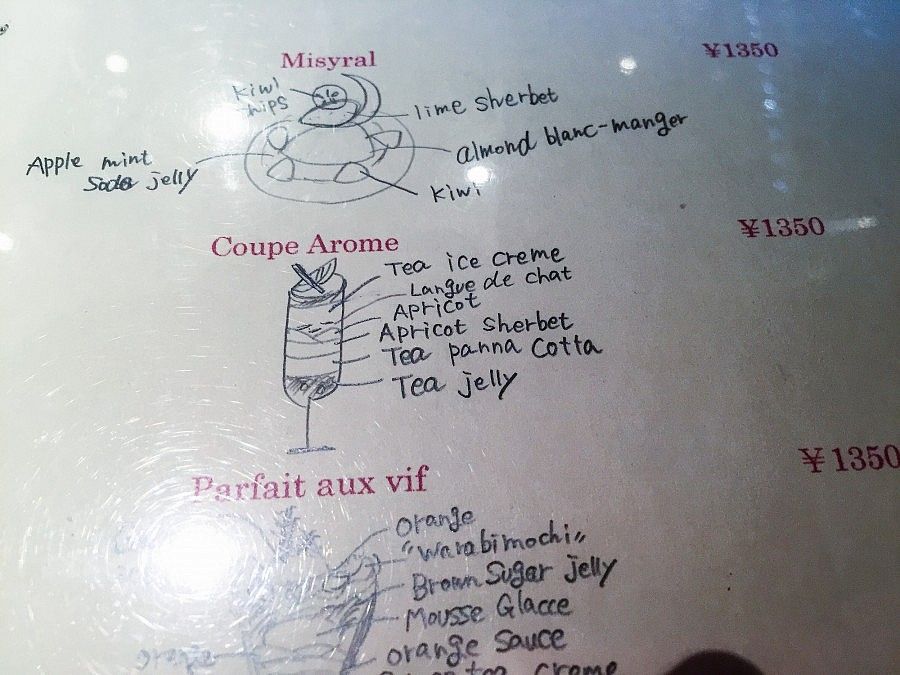 Misyral ¥1350
kiwi
lime sherbet
almond blanc-manger
Apple mint
Soda jelly
kiwi
Coupe Arome ¥1350
Tea ice creme
Langue de chat
Apricot
Apricot sherbet
Tea panna cotta
Tea jelly
Parfait aux vif ¥1350
orange
"Warabimochi"
Brown Sugar jelly
Mousse Glacce
orange sauce
tea creme